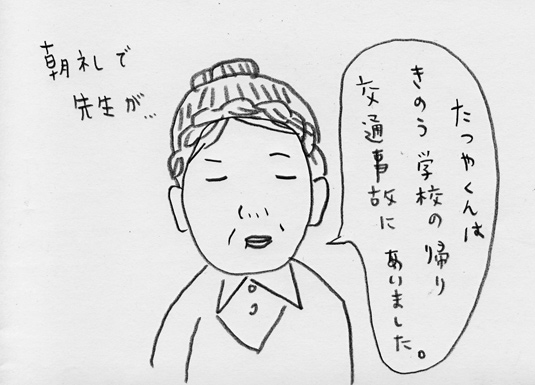 朝礼で
先生が…
たつやくんは
きのう学校の帰り
交通事故に
あいました。